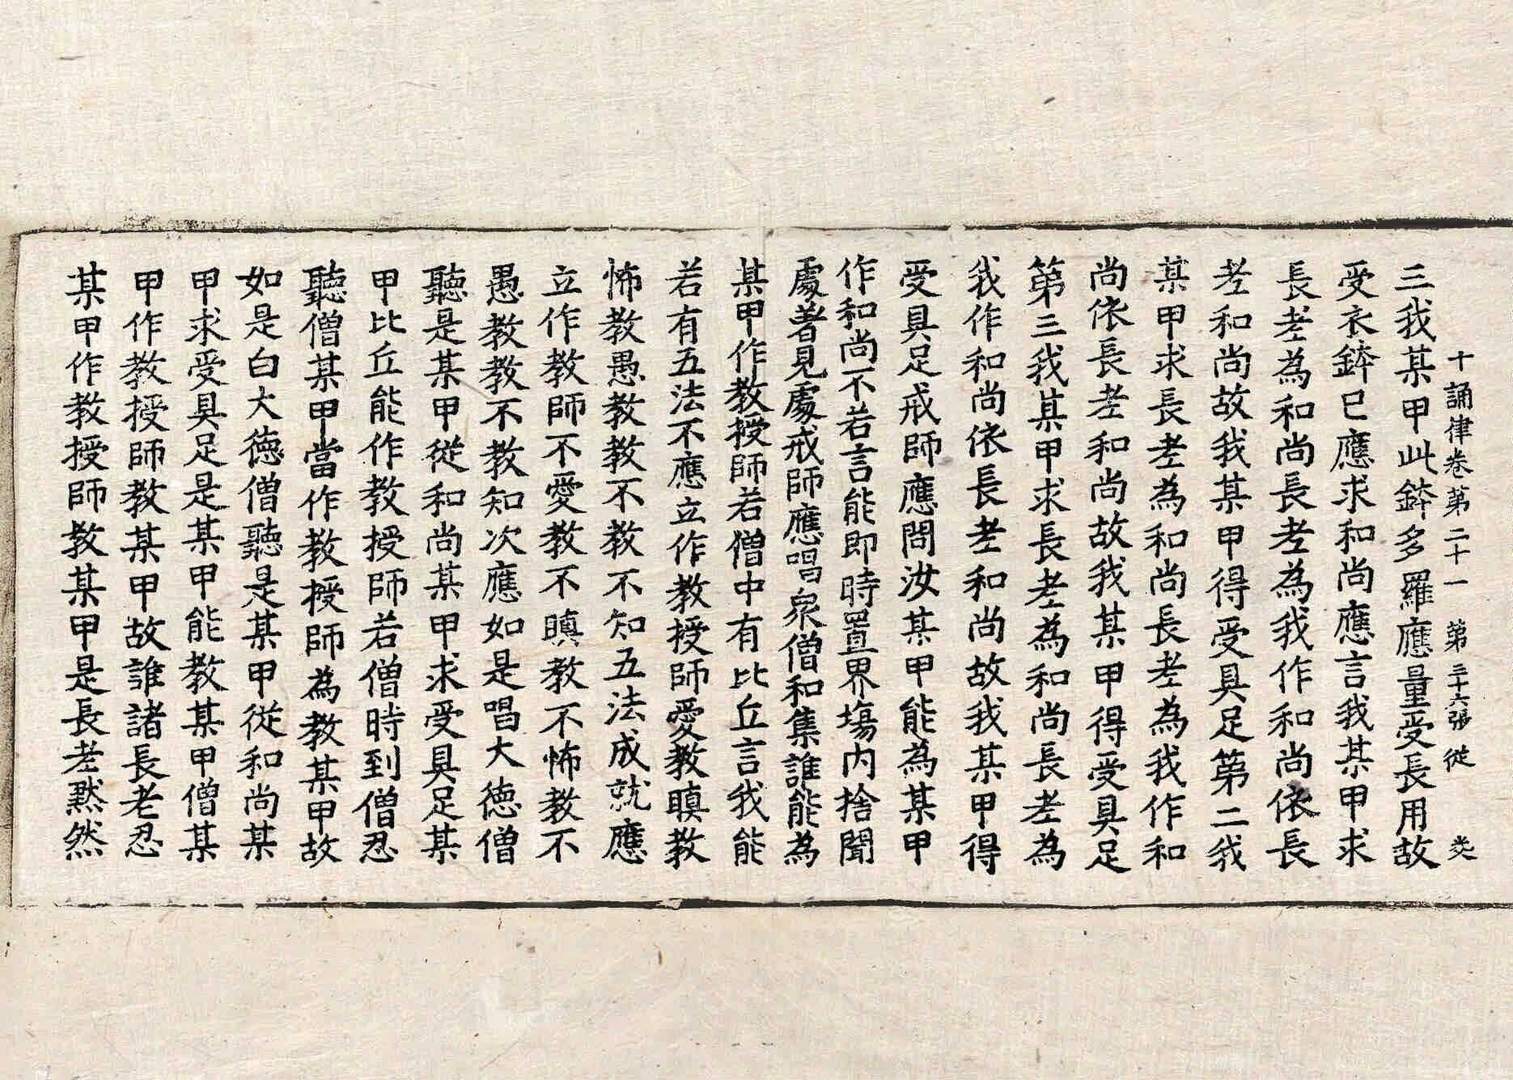 十誦律卷第二十一 第三十六張 從
三我某甲此鉢多羅應量受長用故
受衣鉢已應求和尚應言我某甲求
長老為和尚長老為我作和尚依長
老和尚故我某甲得受具足第二我
某甲求長老為和尚長老為我作和
尚依長老和尚故我某甲得受具足
第三我某甲求長老為和尚長老為
我作和尚依長老和尚故我某甲得
受具足戒師應問汝某甲能為某甲
作和尚不若言能即時置界場內捨聞
處著見處戒師應唱眾僧和集誰能為
某甲作教授師若僧中有比丘言我能
若有五法不應立作教授師愛教瞋教
怖教愚教教不教不知五法成就應
立作教師不愛教不瞋教不怖教不
愚教教不教知次應如是唱大德僧
聽是某甲從和尚某甲求受具足某
甲比丘能作教授師若僧時到僧忍
聽僧某甲當作教授師為教某甲故
如是白大德僧聽是某甲從和尚某
甲求受具足是某甲能教某甲僧某
甲作教授師教某甲故誰諸長老忍
某甲作教授師教某甲是長老默然